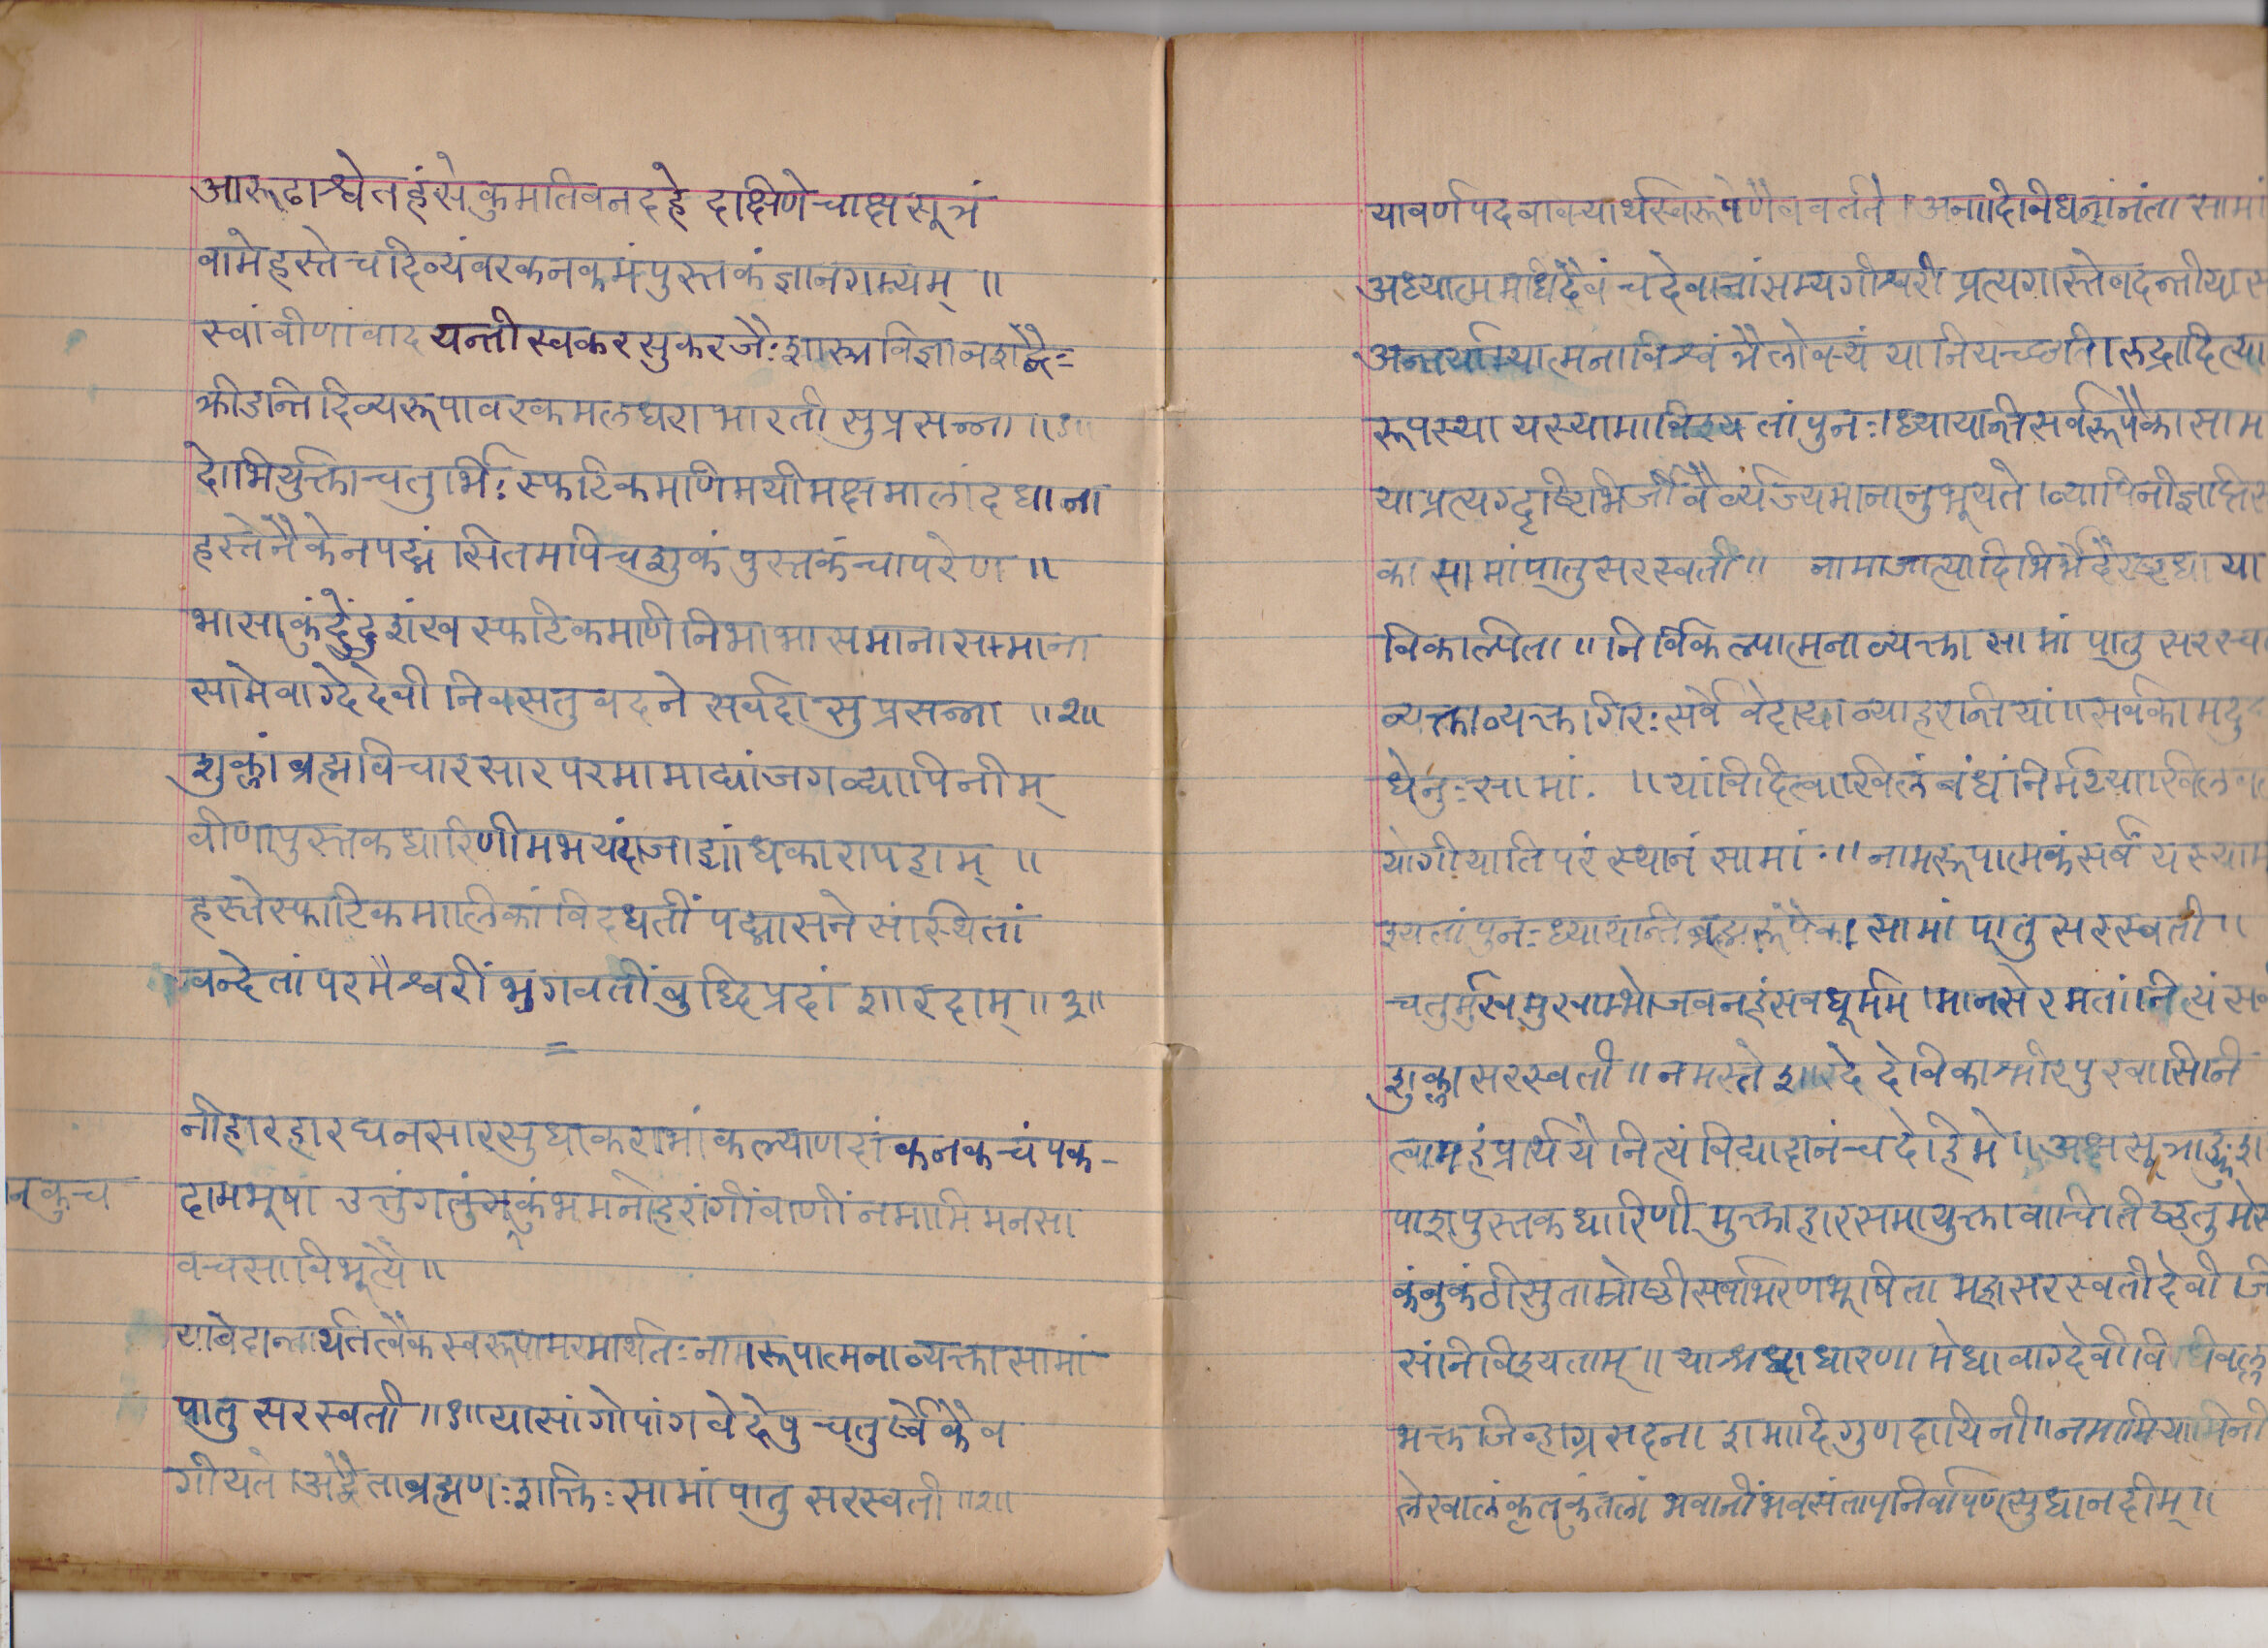 आरूढाश्वेतहंसे कुमतिवनदहे दक्षिणेचाक्षसूत्रं
वामेहस्तेचदिव्यंवरकनकमंपुस्तकंज्ञानगम्यम् ॥
स्वांवीणांवादयन्तीस्वकरसुकरजैःशास्त्रविज्ञानशब्दैः
क्रीडन्तिदिव्यरूपावरकमलधराभारतीसुप्रसन्ना ॥१॥
दोभिर्युक्ताचतुर्भिः स्फटिकमणिमयीमक्षमालांदधाना
हस्तेनैकेनपद्मं सितमपिचशुकं पुस्तकंचापरेण ॥
भासाकुंदेंदुशंखस्फटिकमणिनिभाभासमानासमाना
सामेवाग्देदेवी निवसतु वदने सर्वदा सुप्रसन्ना ॥२॥
शुक्लां ब्रह्मविचारसारपरमामाद्यांजगव्द्यापिनीम्
वीणापुस्तकधारिणीमभयंदाजाड्यांधकारापहाम् ॥
हस्तेस्फाटिकमालिकांविदधतीं पद्मासने संस्थितां
वन्देतां परमैश्वरीं भगवतीं बुध्दिप्रदां शारदाम् ॥३॥
=
नीहारहारघनसारसुधाकराभांकल्याणदां कनकचंपक-
नकुच
दामभूषां उत्तुंगतुंगकुंभमनोहरांगींवाणीं नमामि मनसा
वचसाविभूत्यै ॥
यांवेदान्तार्थतत्वैकस्वरूपापरमार्थतः नामरूपात्मनाव्यक्तासामां
पातु सरस्वती ॥१॥ यासांगोपांगवेदेषु चतुर्ष्वेकैव
गीयते । अद्वैताब्रह्मणःशक्तिः सामां पातु सरस्वती ॥२॥
यावर्णपदवाक्यार्थस्वरूपेणैववर्तते । अनादिनिधनानंता सामां
अध्यात्ममधिदैवं चदेवानांसम्यगीश्वरी प्रत्यगास्तेवदन्तीया
अन्तर्याम्यात्मनाविश्वं त्रैलोक्यं यानियच्छति । रुद्रादित्या
रूपस्था यस्यामावेश्यतांपुनः । ध्यायन्तिसर्वरूपैकासाम
याप्रत्यग्दृष्टिभिर्जीवैर्व्यज्यमानानुभूयते । व्यापिनीज्ञप्ति
का सा मां पातु सरस्वती ॥ नामजात्यादिभिर्भेदैरष्टधा या
विकल्पिता ॥ निर्विकल्पात्मनाव्यक्ता सामां पातु सरस्व
व्यक्ताव्यक्तगिरःसर्वे वेदाद्या व्याहरन्ति यां ॥ सर्वकामदु
धेनुःसामां. ॥ यांविदित्वाखिलंबंधंनिर्मथ्याखिल
योगीयाति परं स्थानं सामां. ॥ नामरूपात्मकंसर्वं यस्याम
श्यतांपुनःध्यायन्तिब्रह्मरूपैका सामां पातु सरस्वती ॥
चतुर्मुखमुखाम्भोजवनहंसवधूर्मम । मानसे रमतां नित्यं सर्व
शुक्लासरस्वती ॥ नमस्ते शारदे देविकाश्मीरपुरवासिनि
त्वामहंप्रार्थये नित्यं विद्यादानंचदेहिमे ॥ अक्षसूत्राङ्कुश
पाशपुस्तकधारिणी मुक्ताहारसमायुक्तावाचितिष्ठतुमे
कंबुकंठीसुताम्रोष्ठीसर्वाभरणभूषिता महासरस्वतीदेवी जि
संनिविश्यताम् ॥ याश्रध्दा धारणा मेधा वाग्देवीविधिवल्ल
भक्तजिव्हाग्रसदना शमादिगुणदायिनी ॥ नमामियामिनी
लेखालंकृतकुंतलां भवानींभवसंतापनिर्वापणसुधानदीम् ॥